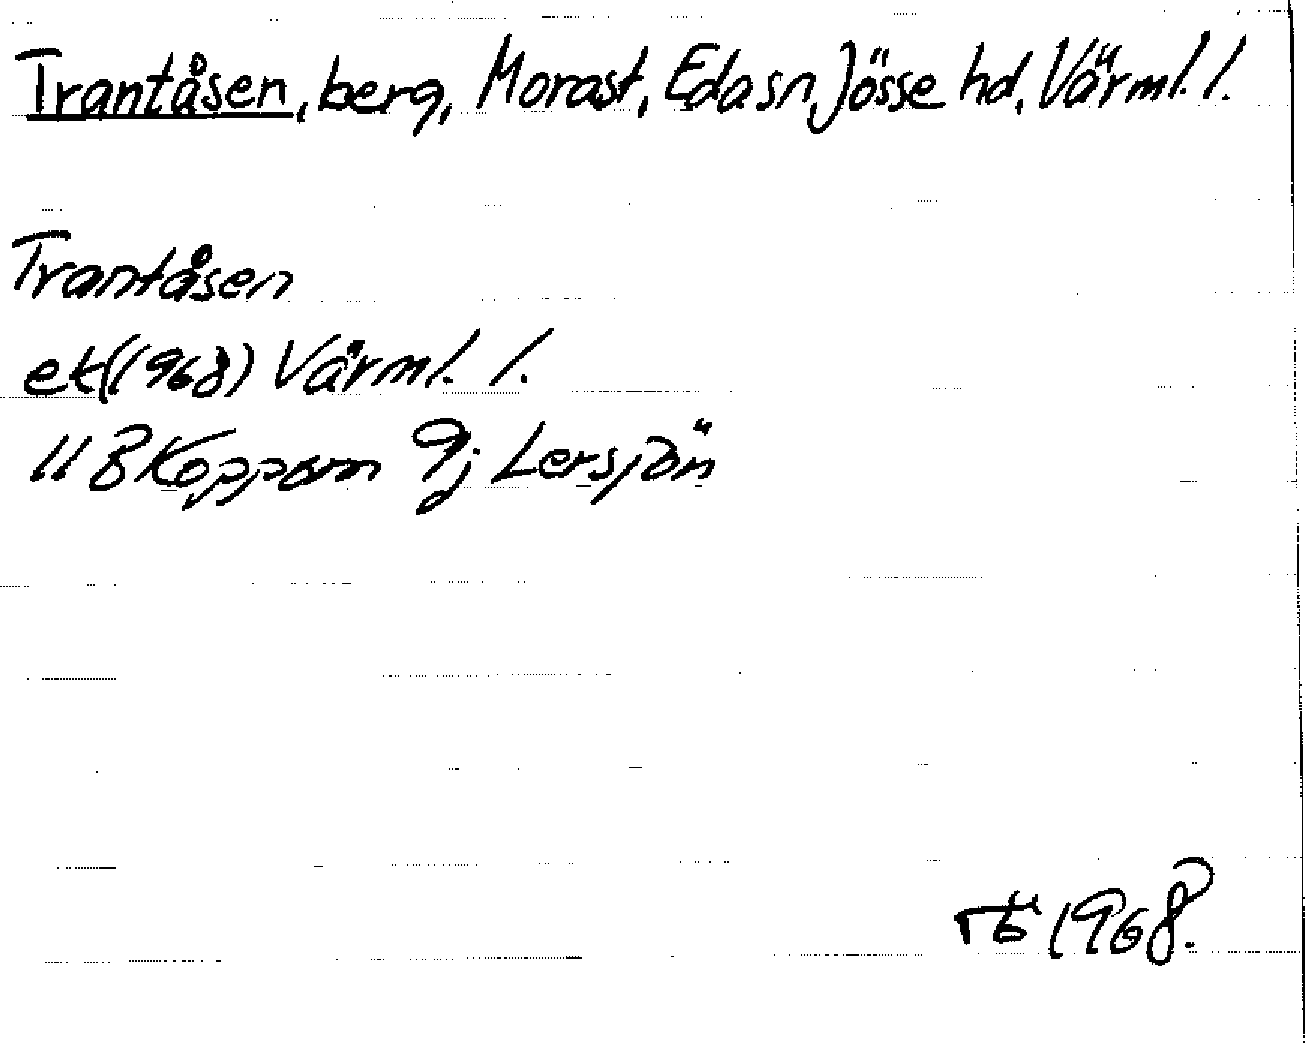 Trantåsen, berg, Morast, Eda sn, Jösse hd, Värml. l.
Trantåsen
ek (1968) Värml. l.
11 B Koppom 9j Lersjön
1968.